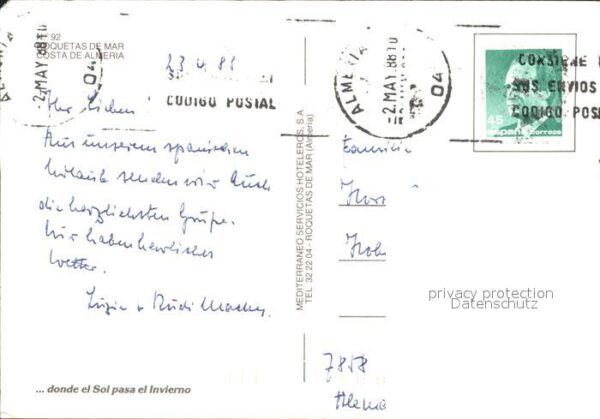 92
ROQUETAS DE MAR
COSTA DE ALMERIA
23.4.88
Ihr Lieben!
Aus unserem spanischen
Urlaub senden wir Euch
die herzlichsten Grüße.
Wir haben herrliches
Wetter.
Luzie u Rudi
... donde el Sol pasa el Invierno
CODIGO POSTAL
-2.MAY.88
04
MEDITERRANEO SERVICIOS HOTELEROS, S.A.
TEL. 32 22 04 - ROQUETAS DE MAR (Almería)
ALMERIA
-2.MAY.88 10
04
CONSIGNE
SUS ENVIOS
CODIGO POSTAL
45
españa correos
Familie
Horst
7858
privacy protection
Datenschutz